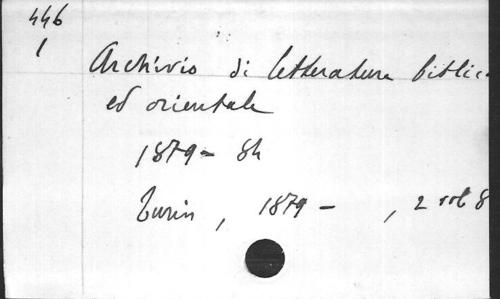 446
1
Archivio di letteratura biblica
ed orientale
1879 - 84
Turin, 1879 - , 2 vol 8